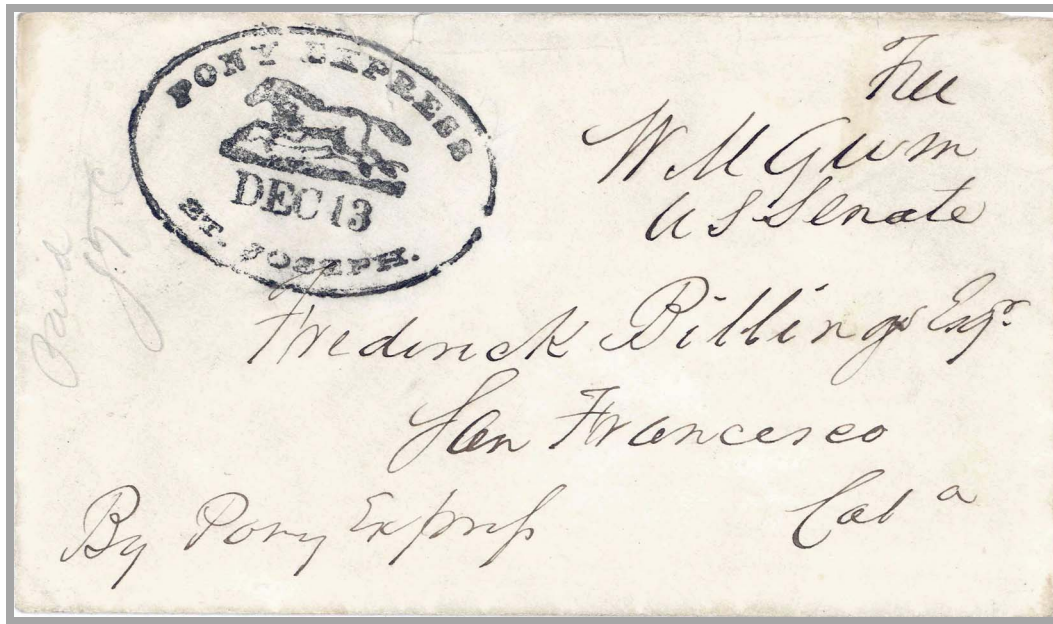 PONY EXPRESS
DEC 13
ST. JOSEPH.
Free
W M Gwin
U S Senate
Paid
Frederick Billings Esqr
San Francisco
Cala
By Pony Express